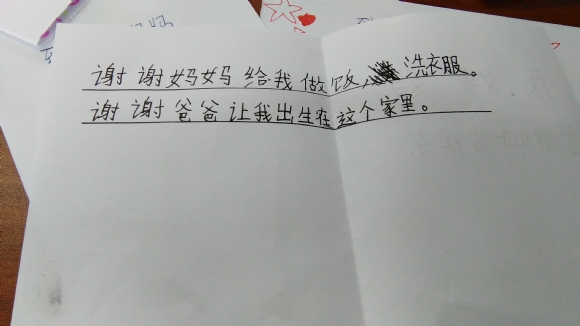 谢谢妈妈给我做饭洗衣服。
谢谢爸爸让我出生在这个家里。